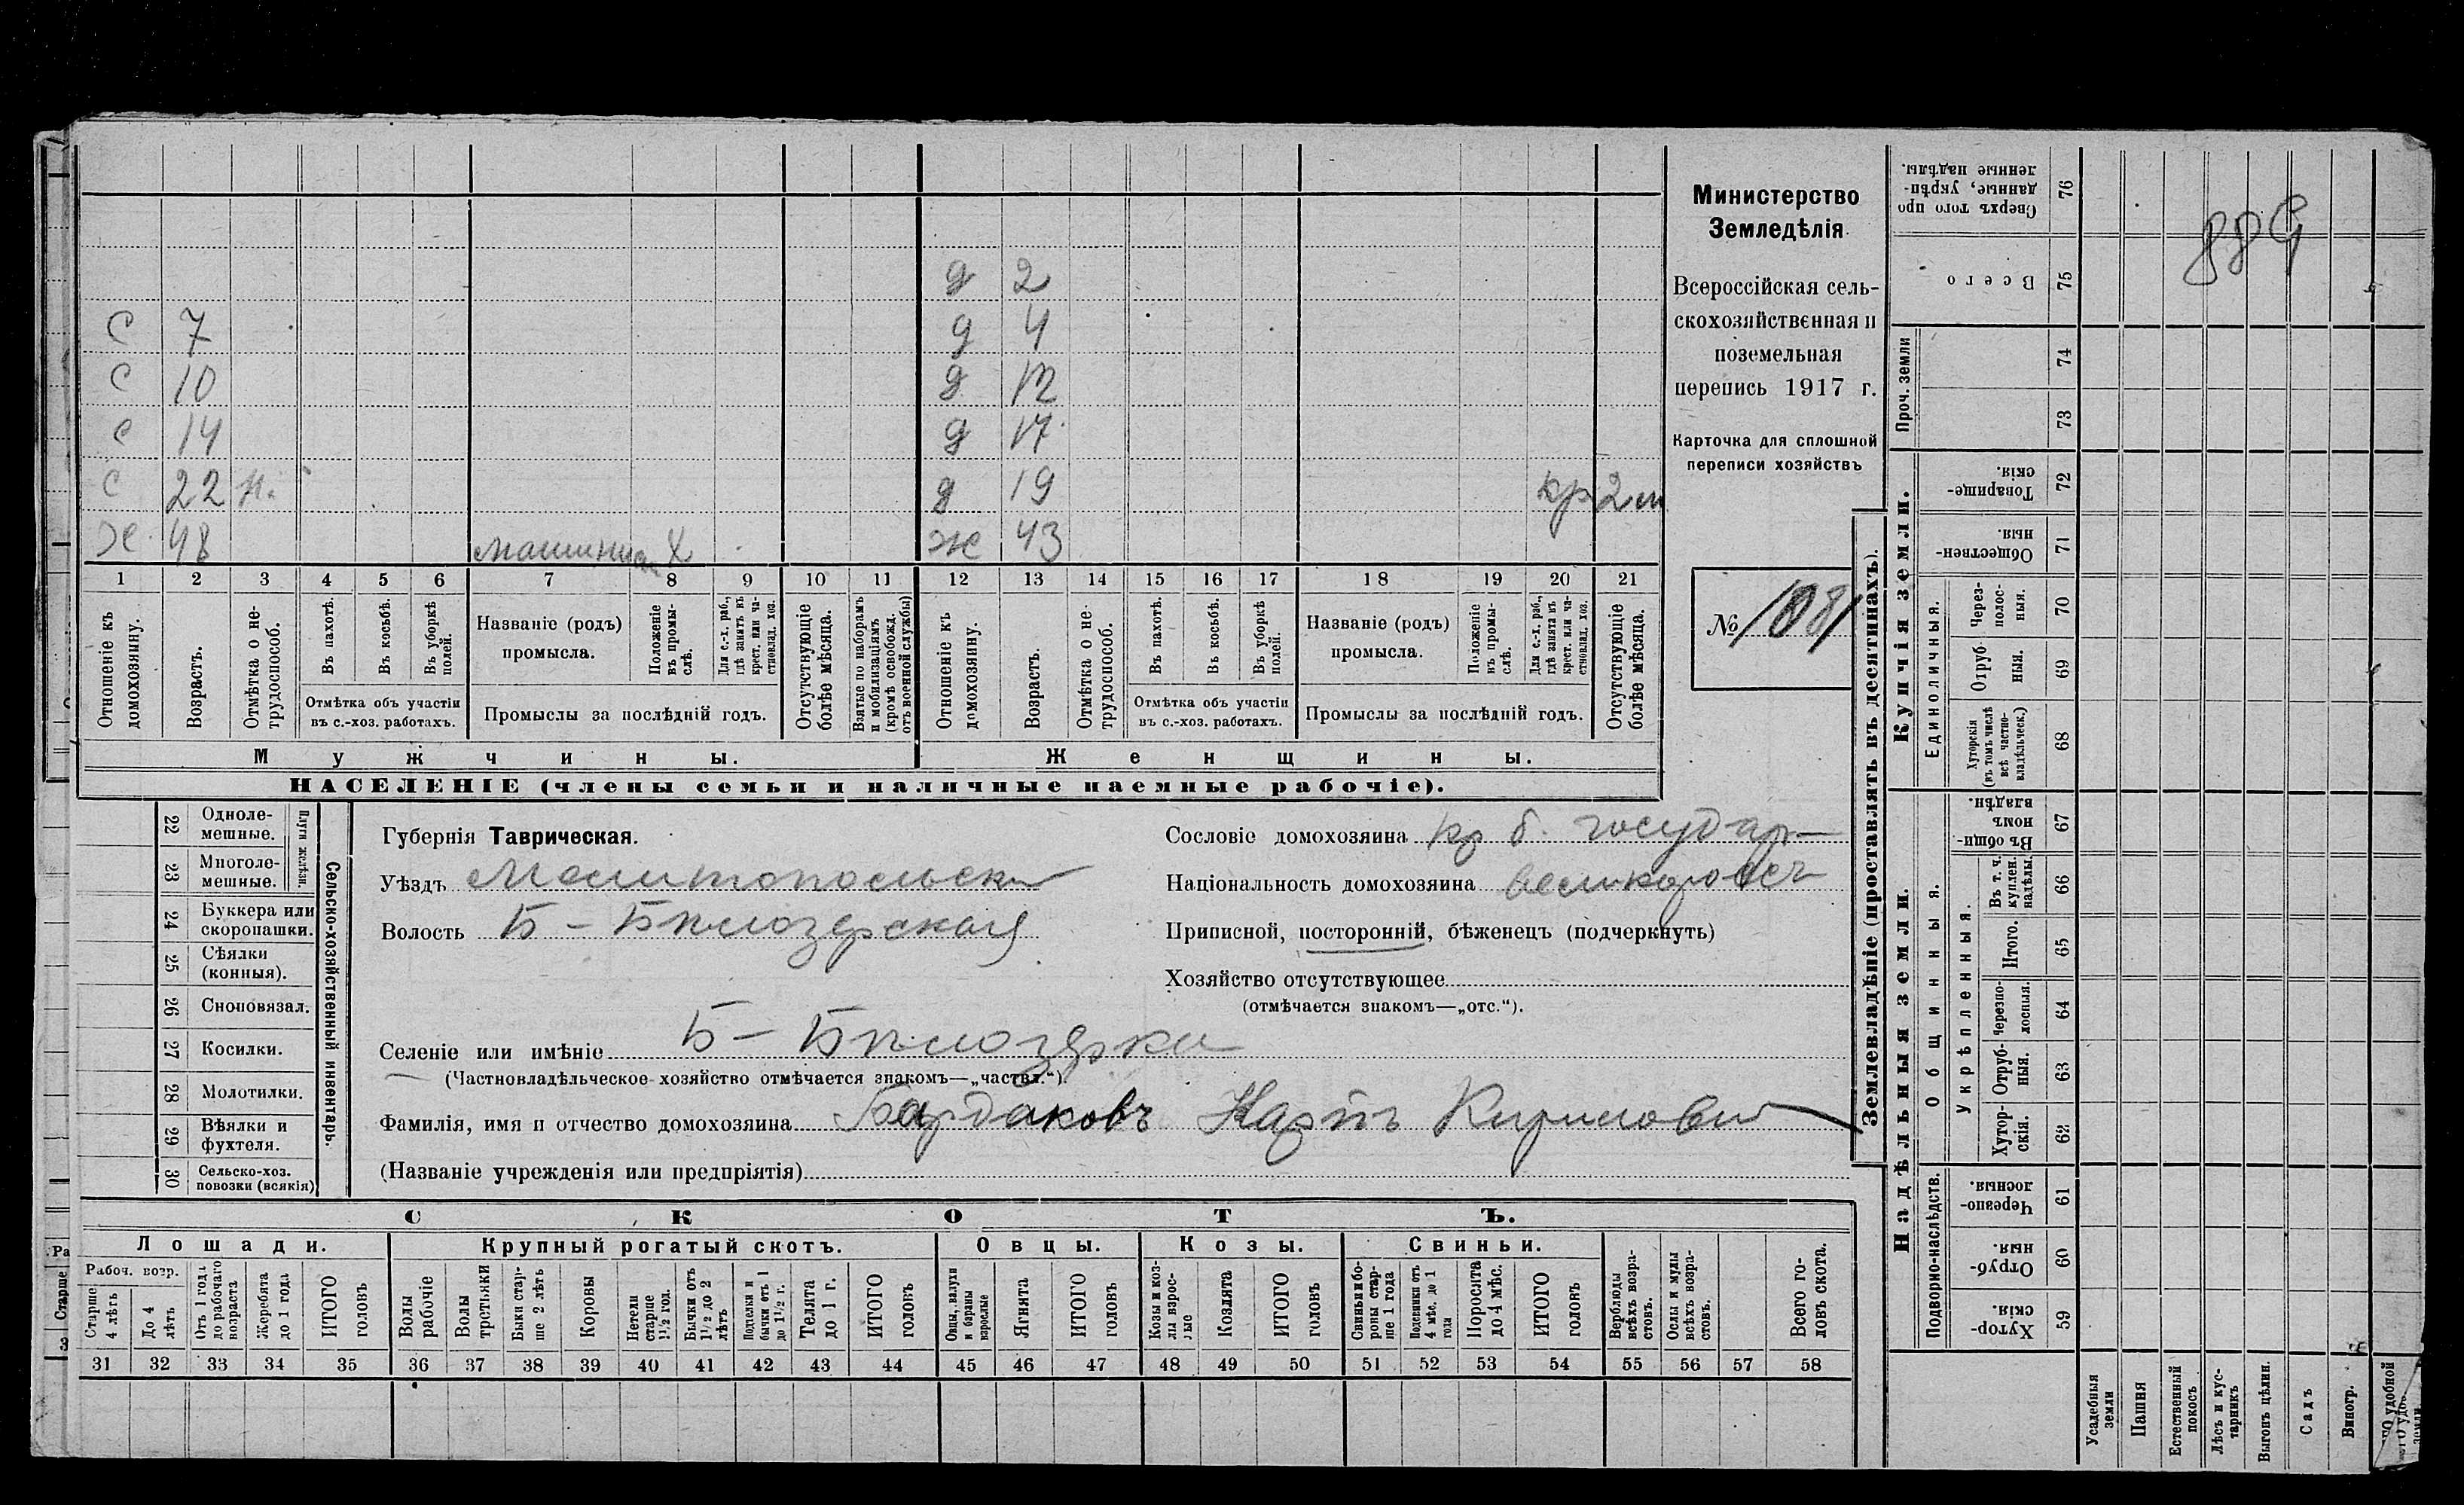 д 2
С 7 д 4
С 10 д 12
С 14 д 17
С 22 н. д 19 кр 2 м
Х. 48 машинис Х ж 43
1 2 3 4 5 6 7 8 9 10 11 12 13 14 15 16 17 18 19 20 21
Отношеніе къ домохозяину.
Возрастъ.
Отмѣтка о не-трудоспособ.
Въ пахотѣ.
Въ косьбѣ.
Въ уборкѣ полей.
Отмѣтка объ участіи
въ с.-хоз. работахъ.
Названіе (родъ)
промысла.
Положеніе въ промы-слѣ.
Для с.-х. раб., гдѣ занятъ въ крест. или ча-стновлад. хоз.
Промыслы за послѣдній годъ.
Отсутствующіе болѣе мѣсяца.
Взятые по наборамъ и мобилизаціямъ (кромѣ освобожд. отъ военной службы)
Отношеніе къ домохозяину.
Возрастъ.
Отмѣтка о не-трудоспособ.
Въ пахотѣ.
Въ косьбѣ.
Въ уборкѣ полей.
Отмѣтка объ участіи
въ с.-хоз. работахъ.
Названіе (родъ)
промысла.
Положеніе въ промы-слѣ.
Для с.-х. раб., гдѣ занята въ крест. или ча-стновлад. хоз.
Промыслы за послѣдній годъ.
Отсутствующіе болѣе мѣсяца.
Мужчины. Женщины.
НАСЕЛЕНІЕ (члены семьи и наличные наемные рабочіе).
Министерство
Земледѣлія
Всероссійская сель-
скохозяйственная и
поземельная
перепись 1917 г.
Карточка для сплошной
переписи хозяйствъ
№ 1081
22 Одноле-мешные.
23 Многоле-мешные.
Плуги желѣзн.
24 Буккера или скоропашки.
25 Сѣялки (конныя).
26 Сноповязал.
27 Косилки.
28 Молотилки.
29 Вѣялки и фухтеля.
30 Сельско-хоз. повозки (всякія)
Сельско-хозяйственный инвентарь.
Губернія Таврическая.
Уѣздъ Мелитопольски
Волость Б - Бѣлозерская
Селеніе или имѣніе Б - Бѣлозерка
(Частновладѣльческое хозяйство отмѣчается знакомъ—„частвл.“).
Фамилія, имя и отчество домохозяина Бардаковъ Карпъ Кирилови
(Названіе учрежденія или предпріятія)
Сословіе домохозяина кр б. государ
Національность домохозяина великоросс
Приписной, посторонній, бѣженецъ (подчеркнуть)
Хозяйство отсутствующее
(отмѣчается знакомъ—„отс.“).
СКОТЪ.
Лошади. Крупный рогатый скотъ. Овцы. Козы. Свиньи.
Рабоч. возр.
Старше 4 лѣтъ
До 4 лѣтъ
Отъ 1 года до рабочаго возраста
Жеребята до 1 года
ИТОГО головъ
Волы рабочіе
Волы третьяки
Быки стар-ше 2 лѣтъ
Коровы
Нетели старше 1½ год.
Бычки отъ 1½ до 2 лѣтъ
Подтелки и бычки отъ 1 до 1½ г.
Телята до 1 г.
ИТОГО головъ
Овцы, валухи и бараны взрослые
Ягнята
ИТОГО головъ
Козы и коз-лы взрос-лые
Козлята
ИТОГО головъ
Свиньи и бо-ровы стар-ше 1 года
Подсвинки отъ 4 мѣс. до 1 года
Поросята до 4 мѣс.
ИТОГО головъ
Верблюды всѣхъ возра-стовъ.
Ослы и мулы всѣхъ возра-стовъ.
Всего го-ловъ скота.
31 32 33 34 35 36 37 38 39 40 41 42 43 44 45 46 47 48 49 50 51 52 53 54 55 56 57 58
Землевладѣніе (проставлять въ десятинахъ).
Купчія земли.
Надѣльныя земли.
Сверхъ того про-данные, укрѣп-ленные надѣлы. 76
Всего 75
Проч. земли 74
73
Товарище-скія. 72
Обществен-ныя. 71
Единоличныя.
Через-полос-ныя. 70
Отруб-ныя. 69
Хуторскія (въ томъ числѣ всѣ частно-владѣльческ.) 68
Общинныя.
Въ общи-номъ владѣн. 67
Укрѣпленныя.
Въ т. ч. куплен. надѣлы. 66
Итого. 65
Черезпо-лосныя. 64
Отруб-ныя. 63
Хутор-скія. 62
Подворно-наслѣдств.
Черезпо-лосныя. 61
Отруб-ныя. 60
Хутор-скія. 59
Усадебныя земли
Пашня
Естественный покосъ
Лѣсъ и кус-тарникъ
Выгонъ цѣлин.
Садъ
Виногр.
удобной
889